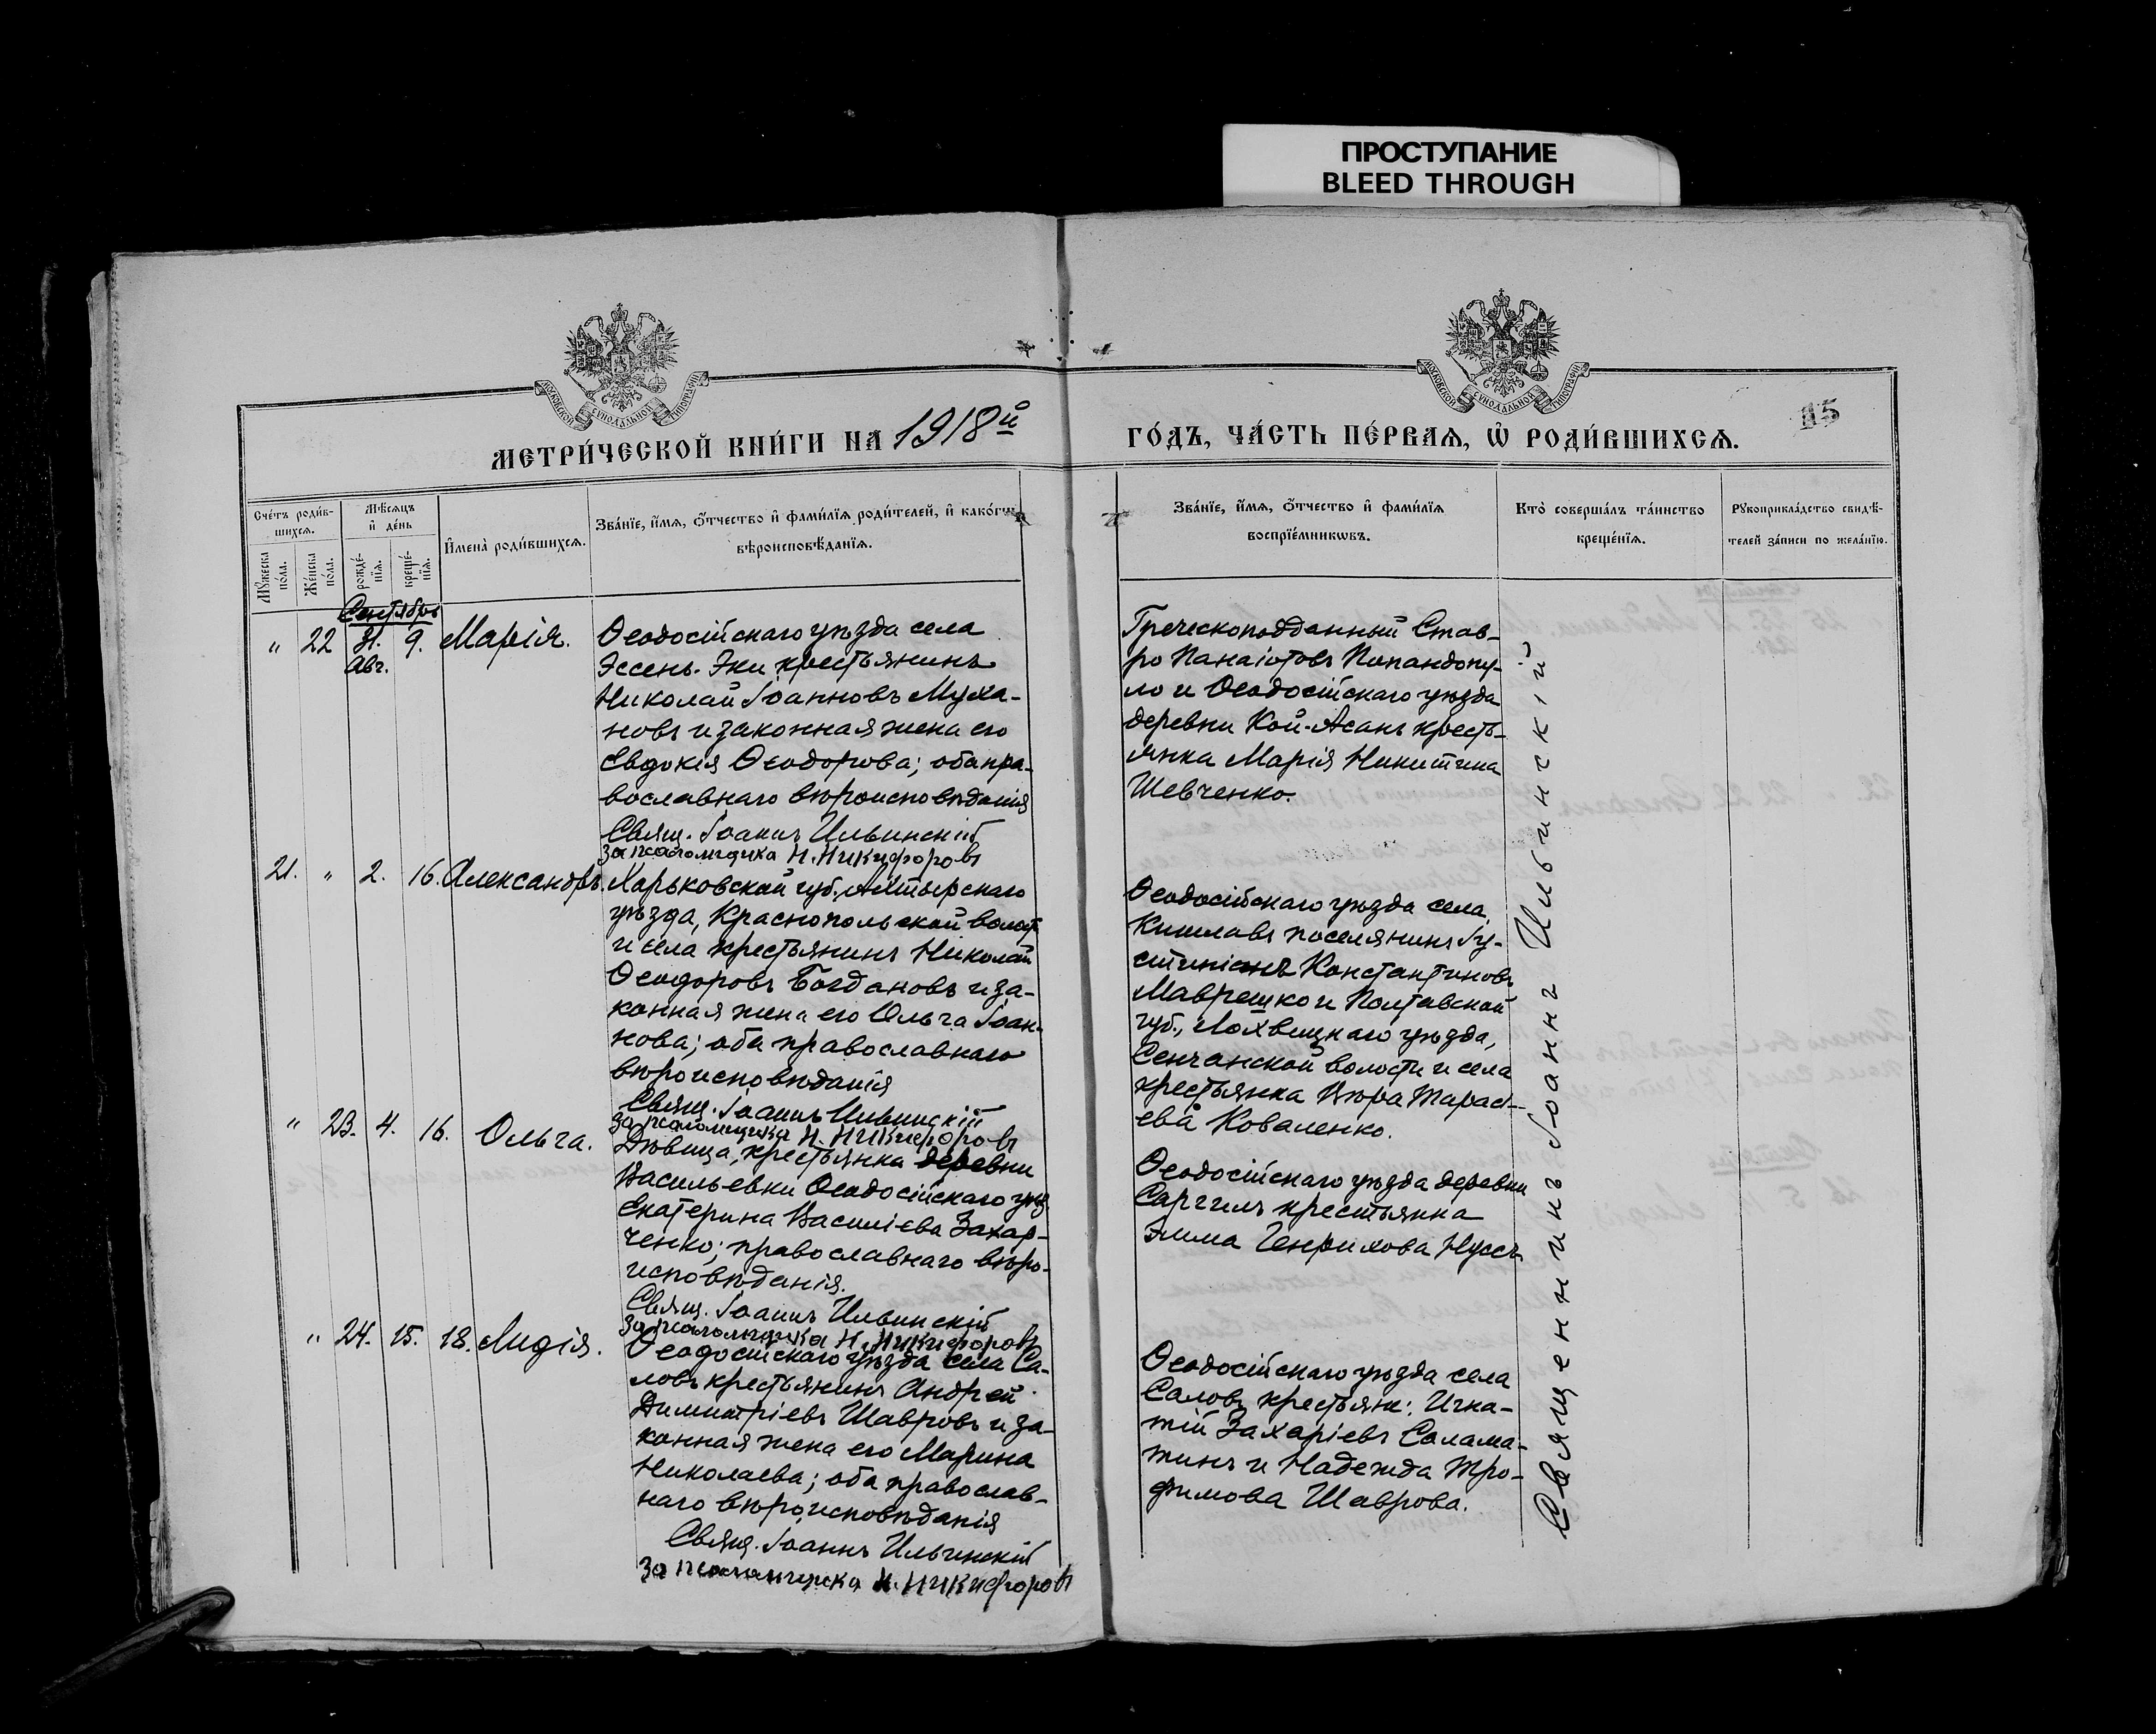 ПРОСТУПАНИЕ
BLEED THROUGH
МОСКОВСКОЙ СѴНОДАЛЬНОЙ ТИПОГРАФІИ
МОСКОВСКОЙ СѴНОДАЛЬНОЙ ТИПОГРАФІИ
МЕТРИ́ЧЕСКОЙ КНИ́ГИ НА 1918й
ГО́ДЪ, ЧА́СТЬ ПЕ́РВАѦ, Ѡ҆ РОДИ́ВШИХСѦ.
15
Сче́тъ роди́в-
шихсѧ.
Мꙋ́жеска по́ла.
Же́нска по́ла.
Мѣ́сѧцъ
и҆ де́нь
рожде́-
нїѧ.
креще́-
нїѧ.
И҆мена̀ роди́вшихсѧ.
Зва́нїе, и҆́мѧ, ѻ҆́тчество и҆ фами́лїѧ роди́телей, и҆ како́гѡ
вѣроисповѣ́данїѧ.
Зва́нїе, и҆́мѧ, ѻ҆́тчество и҆ фами́лїѧ
воспрїе́мникѡвъ.
Кто̀ соверша́лъ та́инство
креще́нїѧ.
Рꙋкоприкла́дство свидѣ́-
телей за́писи по жела́нїю.
Сентябрь
" 22 31. Авг. 9. Марія.
Ѳеодосійскаго уѣзда села
Эссень-Эки крестьянинъ
Николай Іоанновъ Муха-
новъ и законная жена его
Евдокія Ѳеодорова; оба пра-
вославнаго вѣроисповѣданія
Свящ. Іоаннъ Ильинскій
за псаломщика Н. Никифоровъ
Греческоподданный Став-
ро Панаіотовъ Попандопу-
ло и Ѳеодосійскаго уѣзда
деревни Кой-Асанъ кресть-
янка Марія Никитина
Шевченко.
21. " 2. 16. Александръ.
Харьковской губ., Ахтырскаго
уѣзда, Краснопольской волост.
и села крестьянинъ Николай
Ѳеодоровъ Богдановъ и за-
конная жена его Ольга Іоан-
нова; оба православнаго
вѣроисповѣданія
Свящ. Іоаннъ Ильинскій
за псаломщика Н. Никифоровъ
Ѳеодосійскаго уѣзда села
Кишлавъ поселянинъ Іу-
стиніанъ Константиновъ
Маврешко и Полтавской
губ., Лохвицкаго уѣзда,
Сенчанской волости и села
крестьянка Вѣра Тарась-
ева Коваленко.
" 23. 4. 16. Ольга.
Дѣвица, крестьянка деревни
Васильевки Ѳеодосійскаго уѣз.
Екатерина Василіева Захар-
ченко; православнаго вѣро-
исповѣданія.
Свящ. Іоаннъ Ильинскій
за псаломщика Н. Никифоровъ
Ѳеодосійскаго уѣзда деревни
Саргилъ крестьянка
Эмма Генрихова Нуссъ
" 24. 15. 18. Лидія.
Ѳеодосійскаго уѣзда села Са-
ловъ крестьянинъ Андрей
Димитріевъ Шавровъ и за-
конная жена его Марина
Николаева; оба православ-
наго вѣроисповѣданія
Свящ. Іоаннъ Ильинскій
за псаломщика Н. Никифоровъ
Ѳеодосійскаго уѣзда села
Саловъ крестьян: Игна-
тій Захаріевъ Салама-
тинъ и Надежда Тро-
фимова Шаврова.
Священникъ Іоаннъ Ильинскій